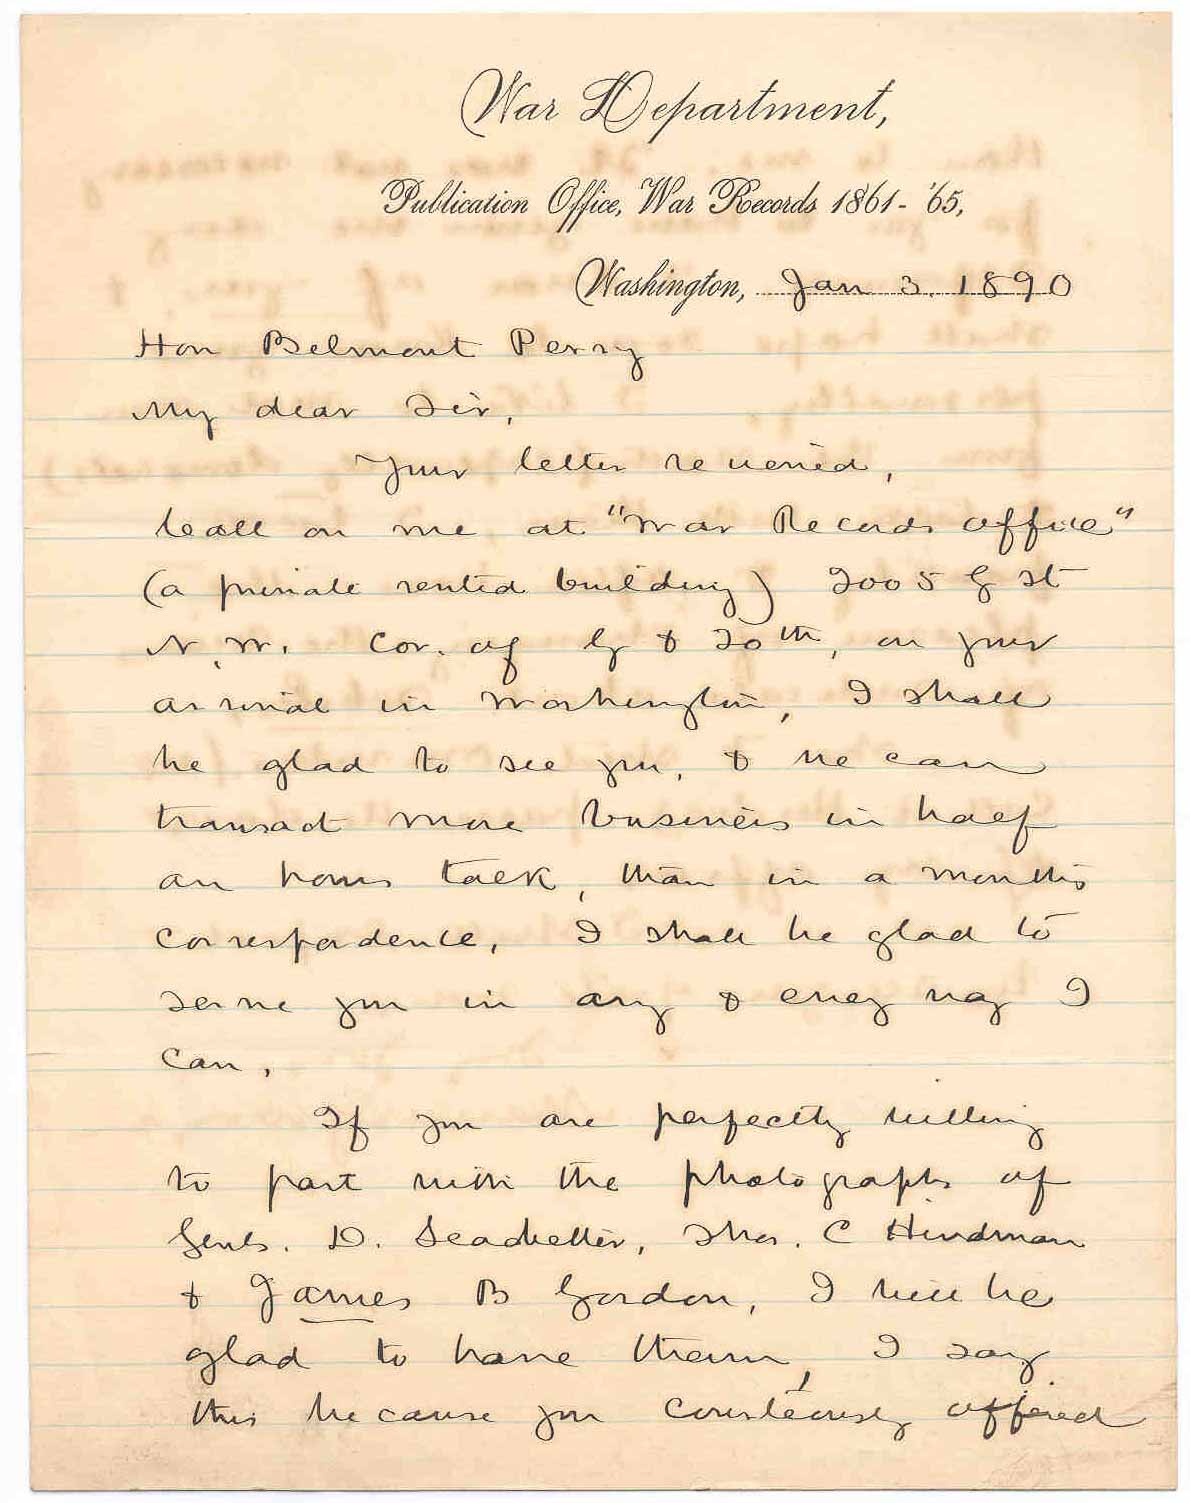 War Department,
Publication Office, War Records 1861-'65,
Washington, Jan 3. 1890
Hon Belmont Perry
My dear Sir,
Your letter received,
Call on me at "War Records Office"
(a private rented building) 2005 G St
N.W. Cor. of G & 20th, on your
arrival in Washington, I shall
be glad to see you, & we can
transact more business in half
an hours talk, than in a months
correspondence, I shall be glad to
serve you in any & every way I
can,
If you are perfectly willing
to part with the photographs of
Genls. D. Leadbetter, Thos. C Hindman
& James B Gordon, I will be
glad to have them, I say
this because you courteously offered